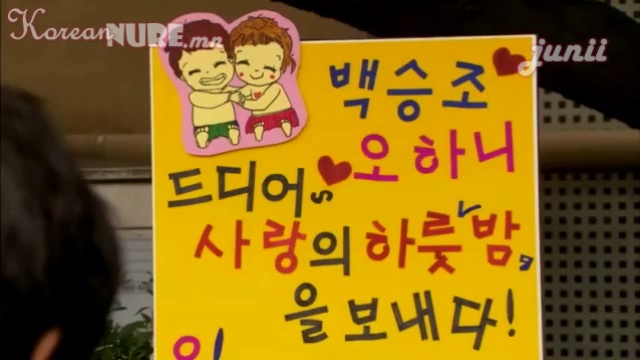 Korean NURE.mn
junii
백승조♥
♥오하니
드디어
사랑의 하룻밤
을 보내다!